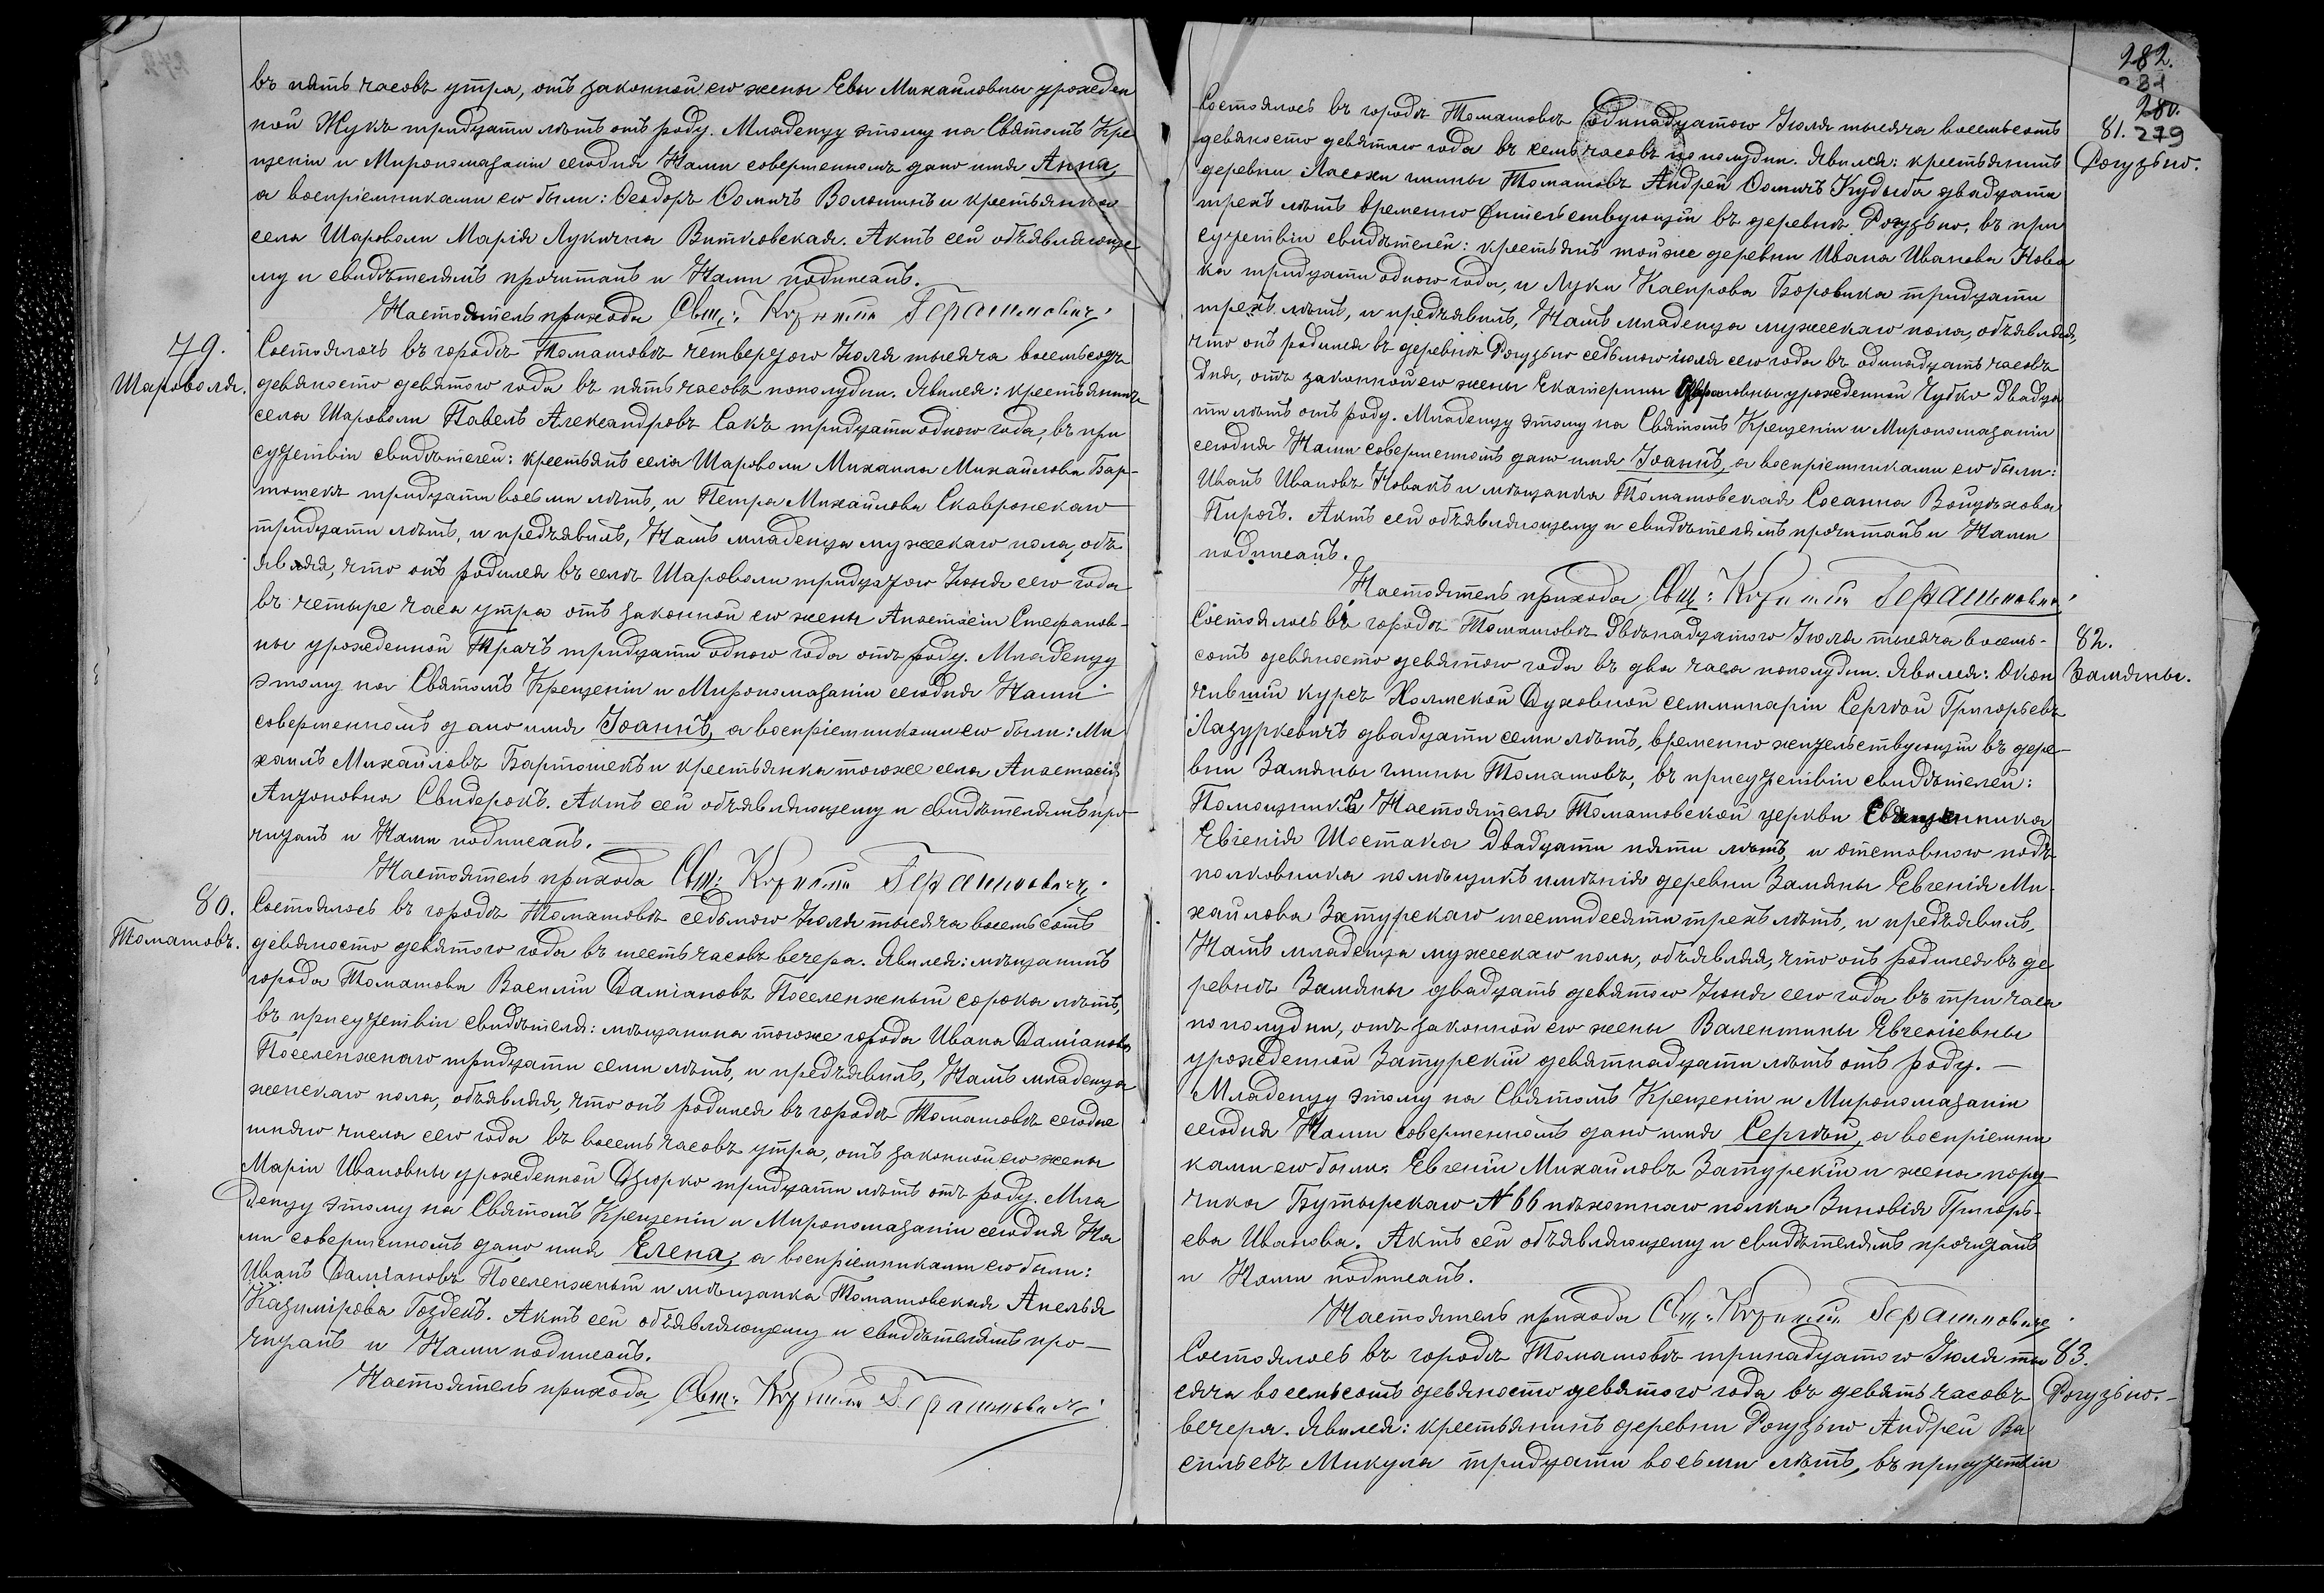 въ пять часовъ утра, отъ законной его жены Евы Михайловны урожден
ной Жукъ тридцати лѣтъ отъ роду. Младенцу этому на Святомъ Кре
щеніи и Миропомазаніи сегодня Нами совершенномъ дано имя Анна,
а воспріемниками его были: Ѳеодоръ Ѳомичъ Волошинъ и крестьянка
села Шароволи Марія Лукична Витковская. Актъ сей объявляюще
му и свидѣтелямъ прочитанъ и Нами подписанъ.
Настоятель прихода Свщ: Корнилій Герашиновичъ.
79.
Шароволя.
Состоялось въ городѣ Томашовѣ четвертого Іюля тысяча восемьсотъ
девяносто девятого года въ пять часовъ пополудни. Явился: крестьянинъ
села Шароволи Павелъ Александровъ Сакъ тридцати одного года, въ при
сутствіи свидѣтелей: крестьянъ села Шароволи Михаила Михайлова Бар-
тошекъ тридцати восьми лѣтъ, и Петра Михайлова Скавронскаго
тридцати лѣтъ, и предъявилъ, Намъ младенца мужескаго пола, объ
являя, что онъ родился въ селѣ Шароволи тридцатого Іюня сего года
въ четыре часа утра отъ законной его жены Анастасіи Стефанов-
ны урожденной Трачъ тридцати одного года отъ роду. Младенцу
этому на Святомъ Крещеніи и Миропомазаніи сегодня Нами
совершенномъ дано имя Іоаннъ, а воспріемниками его были: Ми
хаилъ Михайловъ Бартошекъ и крестьянка тогоже села Анастасія
Антоновна Свидерокъ. Актъ сей объявляющему и свидѣтелямъ про-
читанъ и Нами подписанъ.
Настоятель прихода Свщ: Корнилій Герашиновичъ.
80.
Томашовъ.
Состоялось въ городѣ Томашовѣ седьмого Іюля тысяча восемьсотъ
девяносто девятого года въ шесть часовъ вечера. Явился: мѣщанинъ
города Томашова Василій Даміановъ Поселенжный сорока лѣтъ,
въ присутствіи свидѣтеля: мѣщанина тогоже города Ивана Даміанова
Поселенжнаго тридцати семи лѣтъ, и предъявилъ, Намъ младенца
женскаго пола, объявляя, что онъ родился въ городѣ Томашовѣ сегодне
шняго числа сего года въ восемь часовъ утра, отъ законной его жены
Маріи Ивановны урожденной Дзюрко тридцати лѣтъ отъ роду. Мла
денцу этому на Святомъ Крещеніи и Миропомазаніи сегодня На
ми совершенномъ дано имя Елена, а воспріемниками его были:
Иванъ Даміановъ Поселенжный и мѣщанка Томашовская Анелья
Казимірова Гоздекъ. Актъ сей объявляющему и свидѣтелямъ про-
читанъ и Нами подписанъ.
Настоятель прихода Свщ: Корнилій Герашиновичъ.
282.
281
280.
279
81.
Рогузьно.
Состоялось въ городѣ Томашовѣ одинадцатого Іюля тысяча восемьсотъ
девяносто девятаго года въ семь часовъ пополудни. Явился: крестьянинъ
деревни Ласохи гмины Томашовъ Андрей Ѳомичъ Кудыба двадцати
трехъ лѣтъ временно жительствующій въ деревнѣ Рогузьно, въ при
сутствіи свидѣтелей: крестьянъ тойже деревни Ивана Иванова Нова
ка тридцати одного года, и Луки Каспрова Боровика тридцати
трехъ лѣтъ, и предъявилъ, Намъ младенца мужескаго пола, объявляя,
что онъ родился въ деревнѣ Рогузьно седьмого іюля сего года въ одинадцать часовъ
дня, отъ законной его жены Екатерины урожденной Чубко двадца
ти лѣтъ отъ роду. Младенцу этому на Святомъ Крещеніи и Миропомазаніи
сегодня Нами совершенномъ дано имя Іоаннъ, а воспріемниками его были:
Иванъ Ивановъ Новакъ и мѣщанка Томашовская Сосанна Войцѣхова
Пирогъ. Актъ сей объявляющему и свидѣтелямъ прочитанъ и Нами
подписанъ.
Настоятель прихода Свщ: Корнилій Герашиновичъ.
82.
Замяны.
Состоялось въ городѣ Томашовѣ двѣнадцатого Іюля тысяча восемь-
сотъ девяносто девятого года въ два часа пополудни. Явился: Окон
чившій курсъ Холмской Духовной семминаріи Сергѣй Григорьевъ
Лазуркевичъ двадцати семи лѣтъ, временно жительствующій въ дере-
вни Замяны гмины Томашовъ, въ присутствіи свидѣтелей:
Помощника Настоятеля Томашовской церкви Священника
Евгенія Шостака двадцати пяти лѣтъ, и отставного под-
полковника помѣщикъ имѣнія деревни Замяны Евгенія Ми-
хайлова Затурскаго шестидесяти трехъ лѣтъ, и предъявилъ,
Намъ младенца мужескаго пола, объявляя, что онъ родился въ де
ревнѣ Замяны двадцать девятого Іюня сего года въ три часа
пополудни, отъ законной его жены Валентины Евгеніевны
урожденной Затурскій девятнадцати лѣтъ отъ роду. —
Младенцу этому на Святомъ Крещеніи и Миропомазаніи
сегодня Нами совершенномъ дано имя Сергѣй, а воспріемни
ками его были: Евгеній Михайловъ Затурскій и жена пору-
чика Бутырскаго № 66 пѣхотнаго полка Зиновія Григорь-
ева Иванова. Актъ сей объявляющему и свидѣтелямъ прочитанъ
и Нами подписанъ.
Настоятель прихода Свщ: Корнилій Герашиновичъ.
83.
Рогузьно.-
Состоялось въ городѣ Томашовѣ тринадцатого Іюля ты
сяча восемьсотъ девяносто девятого года въ девять часовъ
вечера. Явился: крестьянинъ деревни Рогузьно Андрей Ва
сильевъ Микула тридцати восьми лѣтъ, въ присутствіи